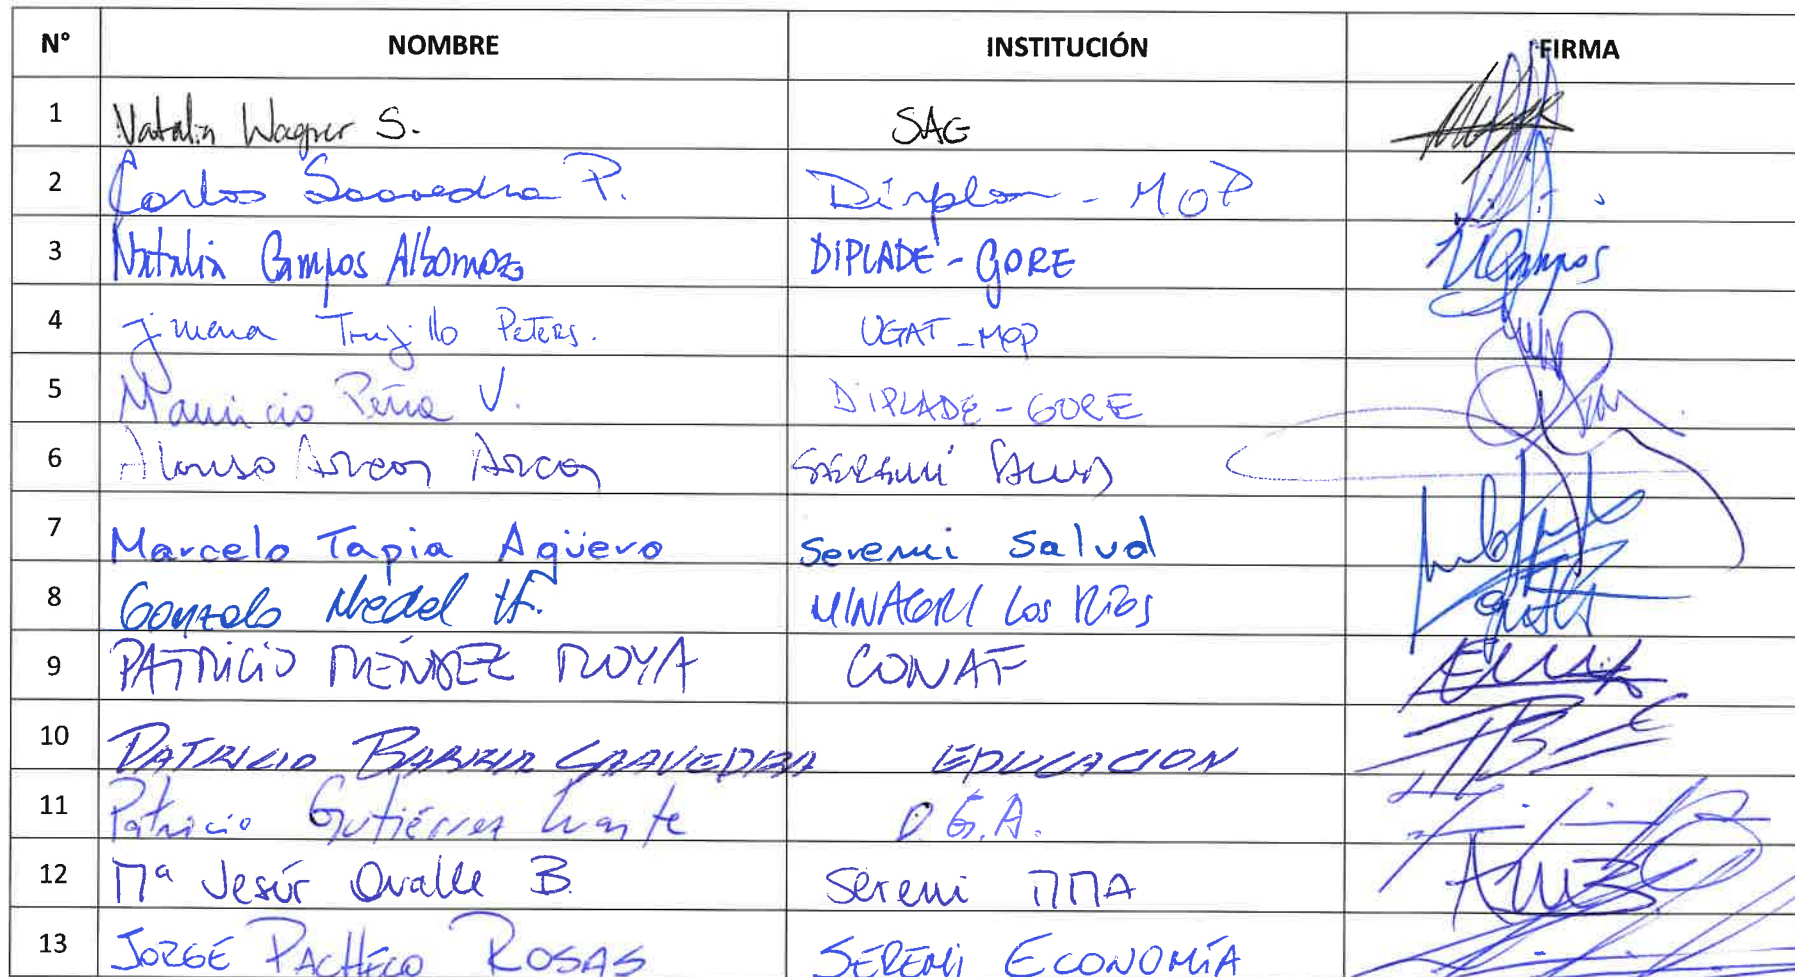 N° NOMBRE INSTITUCIÓN FIRMA
1 Natalia Wagner S. SAG
2 Carlos Saavedra P. Dirplan - MOP
3 Natalia Campos Albornoz DIPLADE - GORE NCampos
4 Jimena Trujillo Peters. UGAT - MOP
5 Mauricio Peña V. DIPLADE - GORE
6 Alonso Arcos Arcos SEREMI Salud
7 Marcelo Tapia Agüero Seremi Salud
8 Gonzalo Medel H. MINAGRI Los Ríos
9 PATRICIO MÉNDEZ MOYA CONAF
10 PATRICIO SAAVEDRA EDUCACION
11 Patricio Gutiérrez D.G.A.
12 Mª Jesús Ovalle B. Seremi MMA
13 JORGE PACHECO ROSAS SEREMI ECONOMÍA